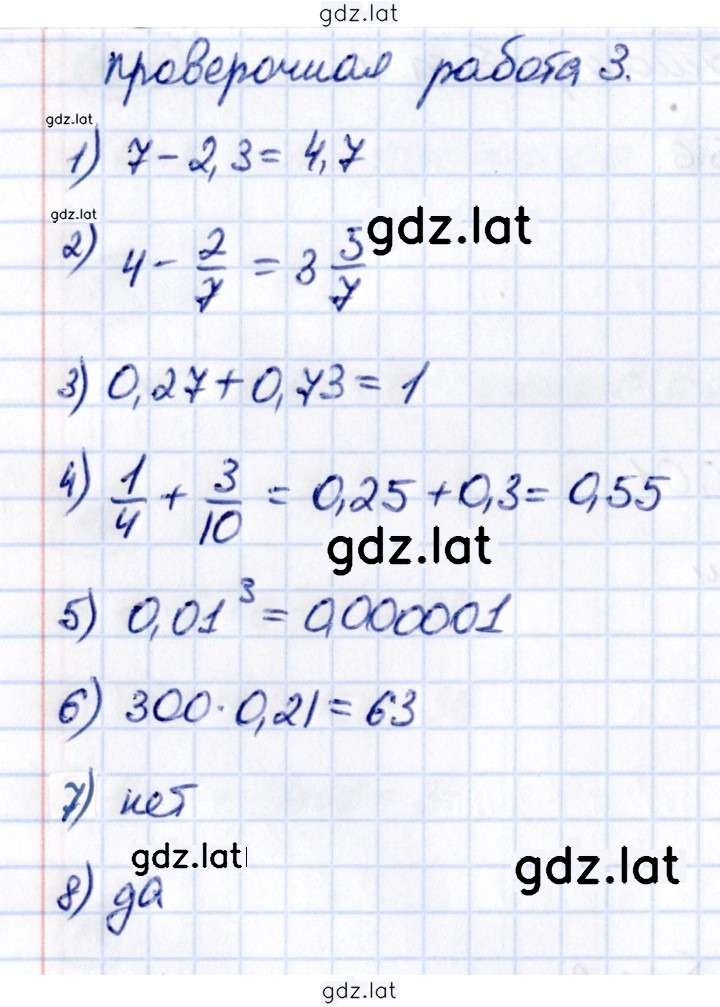 gdz.lat
проверочная работа 3.
gdz.lat
1) 7 - 2,3 = 4,7
gdz.lat
gdz.lat
2) 4 - 2/7 = 3 5/7
3) 0,27 + 0,73 = 1
4) 1/4 + 3/10 = 0,25 + 0,3 = 0,55
gdz.lat
5) 0,01³ = 0,000001
6) 300 · 0,21 = 63
7) нет
gdz.lat
gdz.lat
8) да
gdz.lat